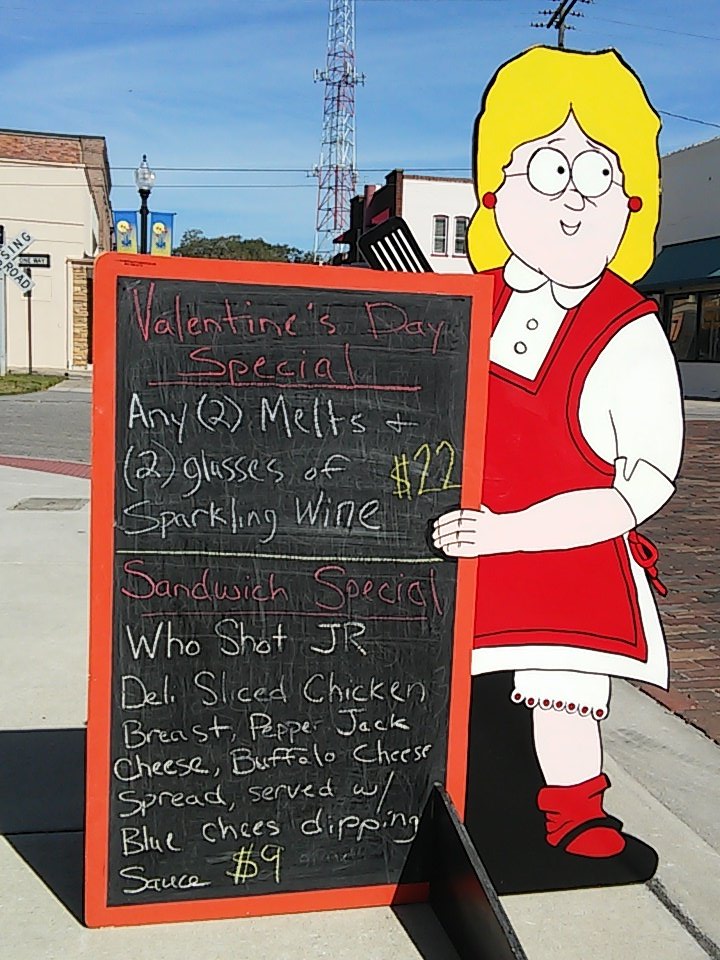 Valentine's Day
Special
Any (2) Melts +
(2) glasses of $22
Sparkling Wine
Sandwich Special
Who Shot JR
Deli Sliced Chicken
Breast, Pepper Jack
Cheese, Buffalo Cheese
Spread, served w/
Blue chees dipping
Sauce $9
ONE WAY
SSING
ROAD